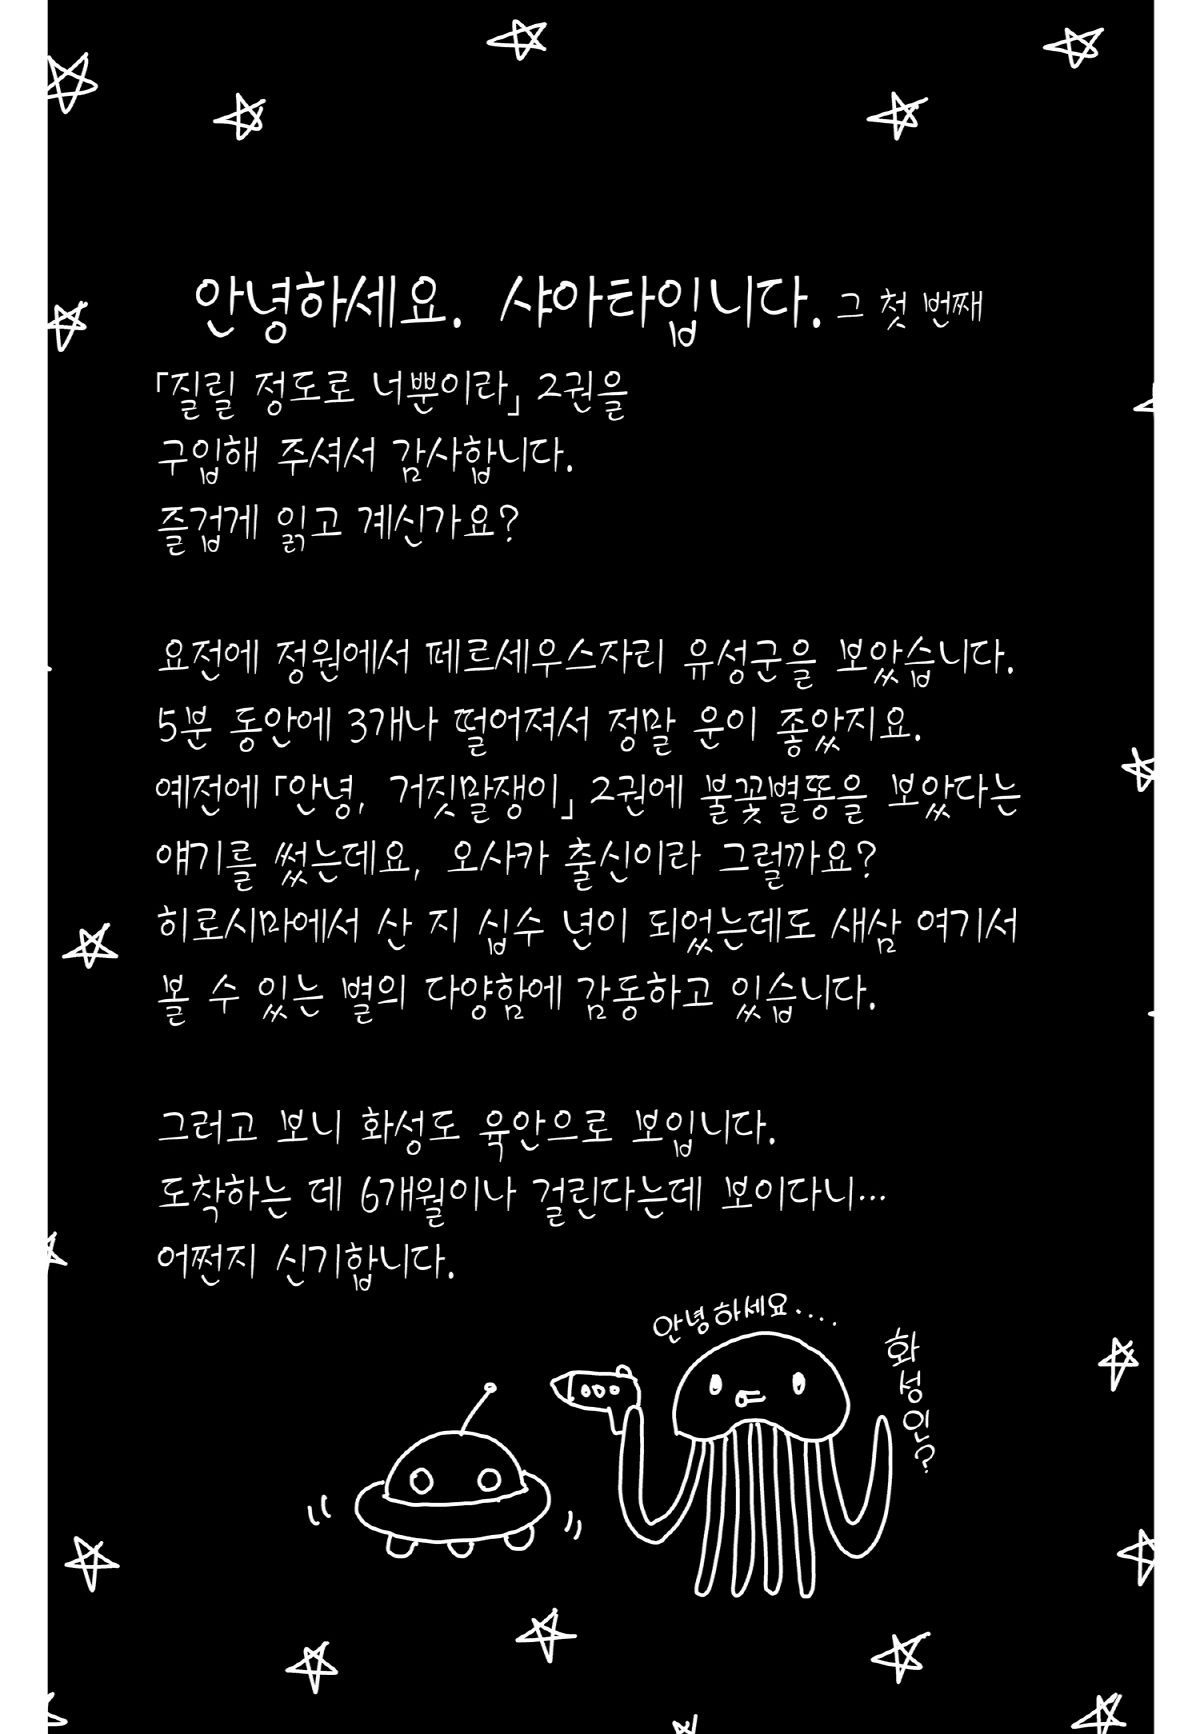 안녕하세요. 샤아타입니다. 그 첫 번째
「질릴 정도로 너뿐이라」 2권을
구입해 주셔서 감사합니다.
즐겁게 읽고 계신가요?
요전에 정원에서 페르세우스자리 유성군을 보았습니다.
5분 동안에 3개나 떨어져서 정말 운이 좋았지요.
예전에 「안녕, 거짓말쟁이」 2권에 불꽃별똥을 보았다는
얘기를 썼는데요, 오사카 출신이라 그럴까요?
히로시마에서 산 지 십수 년이 되었는데도 새삼 여기서
볼 수 있는 별의 다양함에 감동하고 있습니다.
그러고 보니 화성도 육안으로 보입니다.
도착하는 데 6개월이나 걸린다는데 보이다니…
어쩐지 신기합니다.
안녕하세요....
화성인?